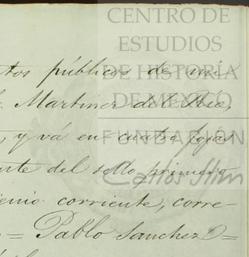 CENTRO DE
ESTUDIOS
DE HISTORIA
DE MEXICO
FUNDACIÓN
Carlos Slim
tos públicos de mi
Martinez del Rio,
, y vá en cuatro fojas
del sello primero
corriente, corre-
= Pablo Sanchez =